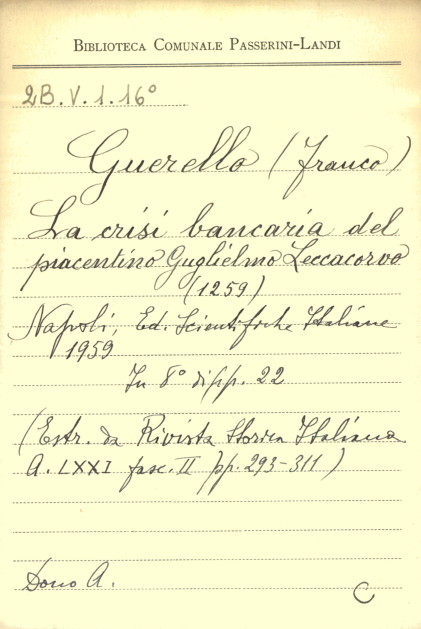 BIBLIOTECA COMUNALE PASSERINI-LANDI
2B.V.1.16°
Guerello (Franco)
La crisi bancaria del
piacentino Guglielmo Leccacorvo
(1259)
Napoli, Ed. Scientifiche Italiane
1959
In 8° di pp. 22
(Estr. da Rivista Storica Italiana
A. LXXI fasc. II pp. 293-311)
Dono A.
C